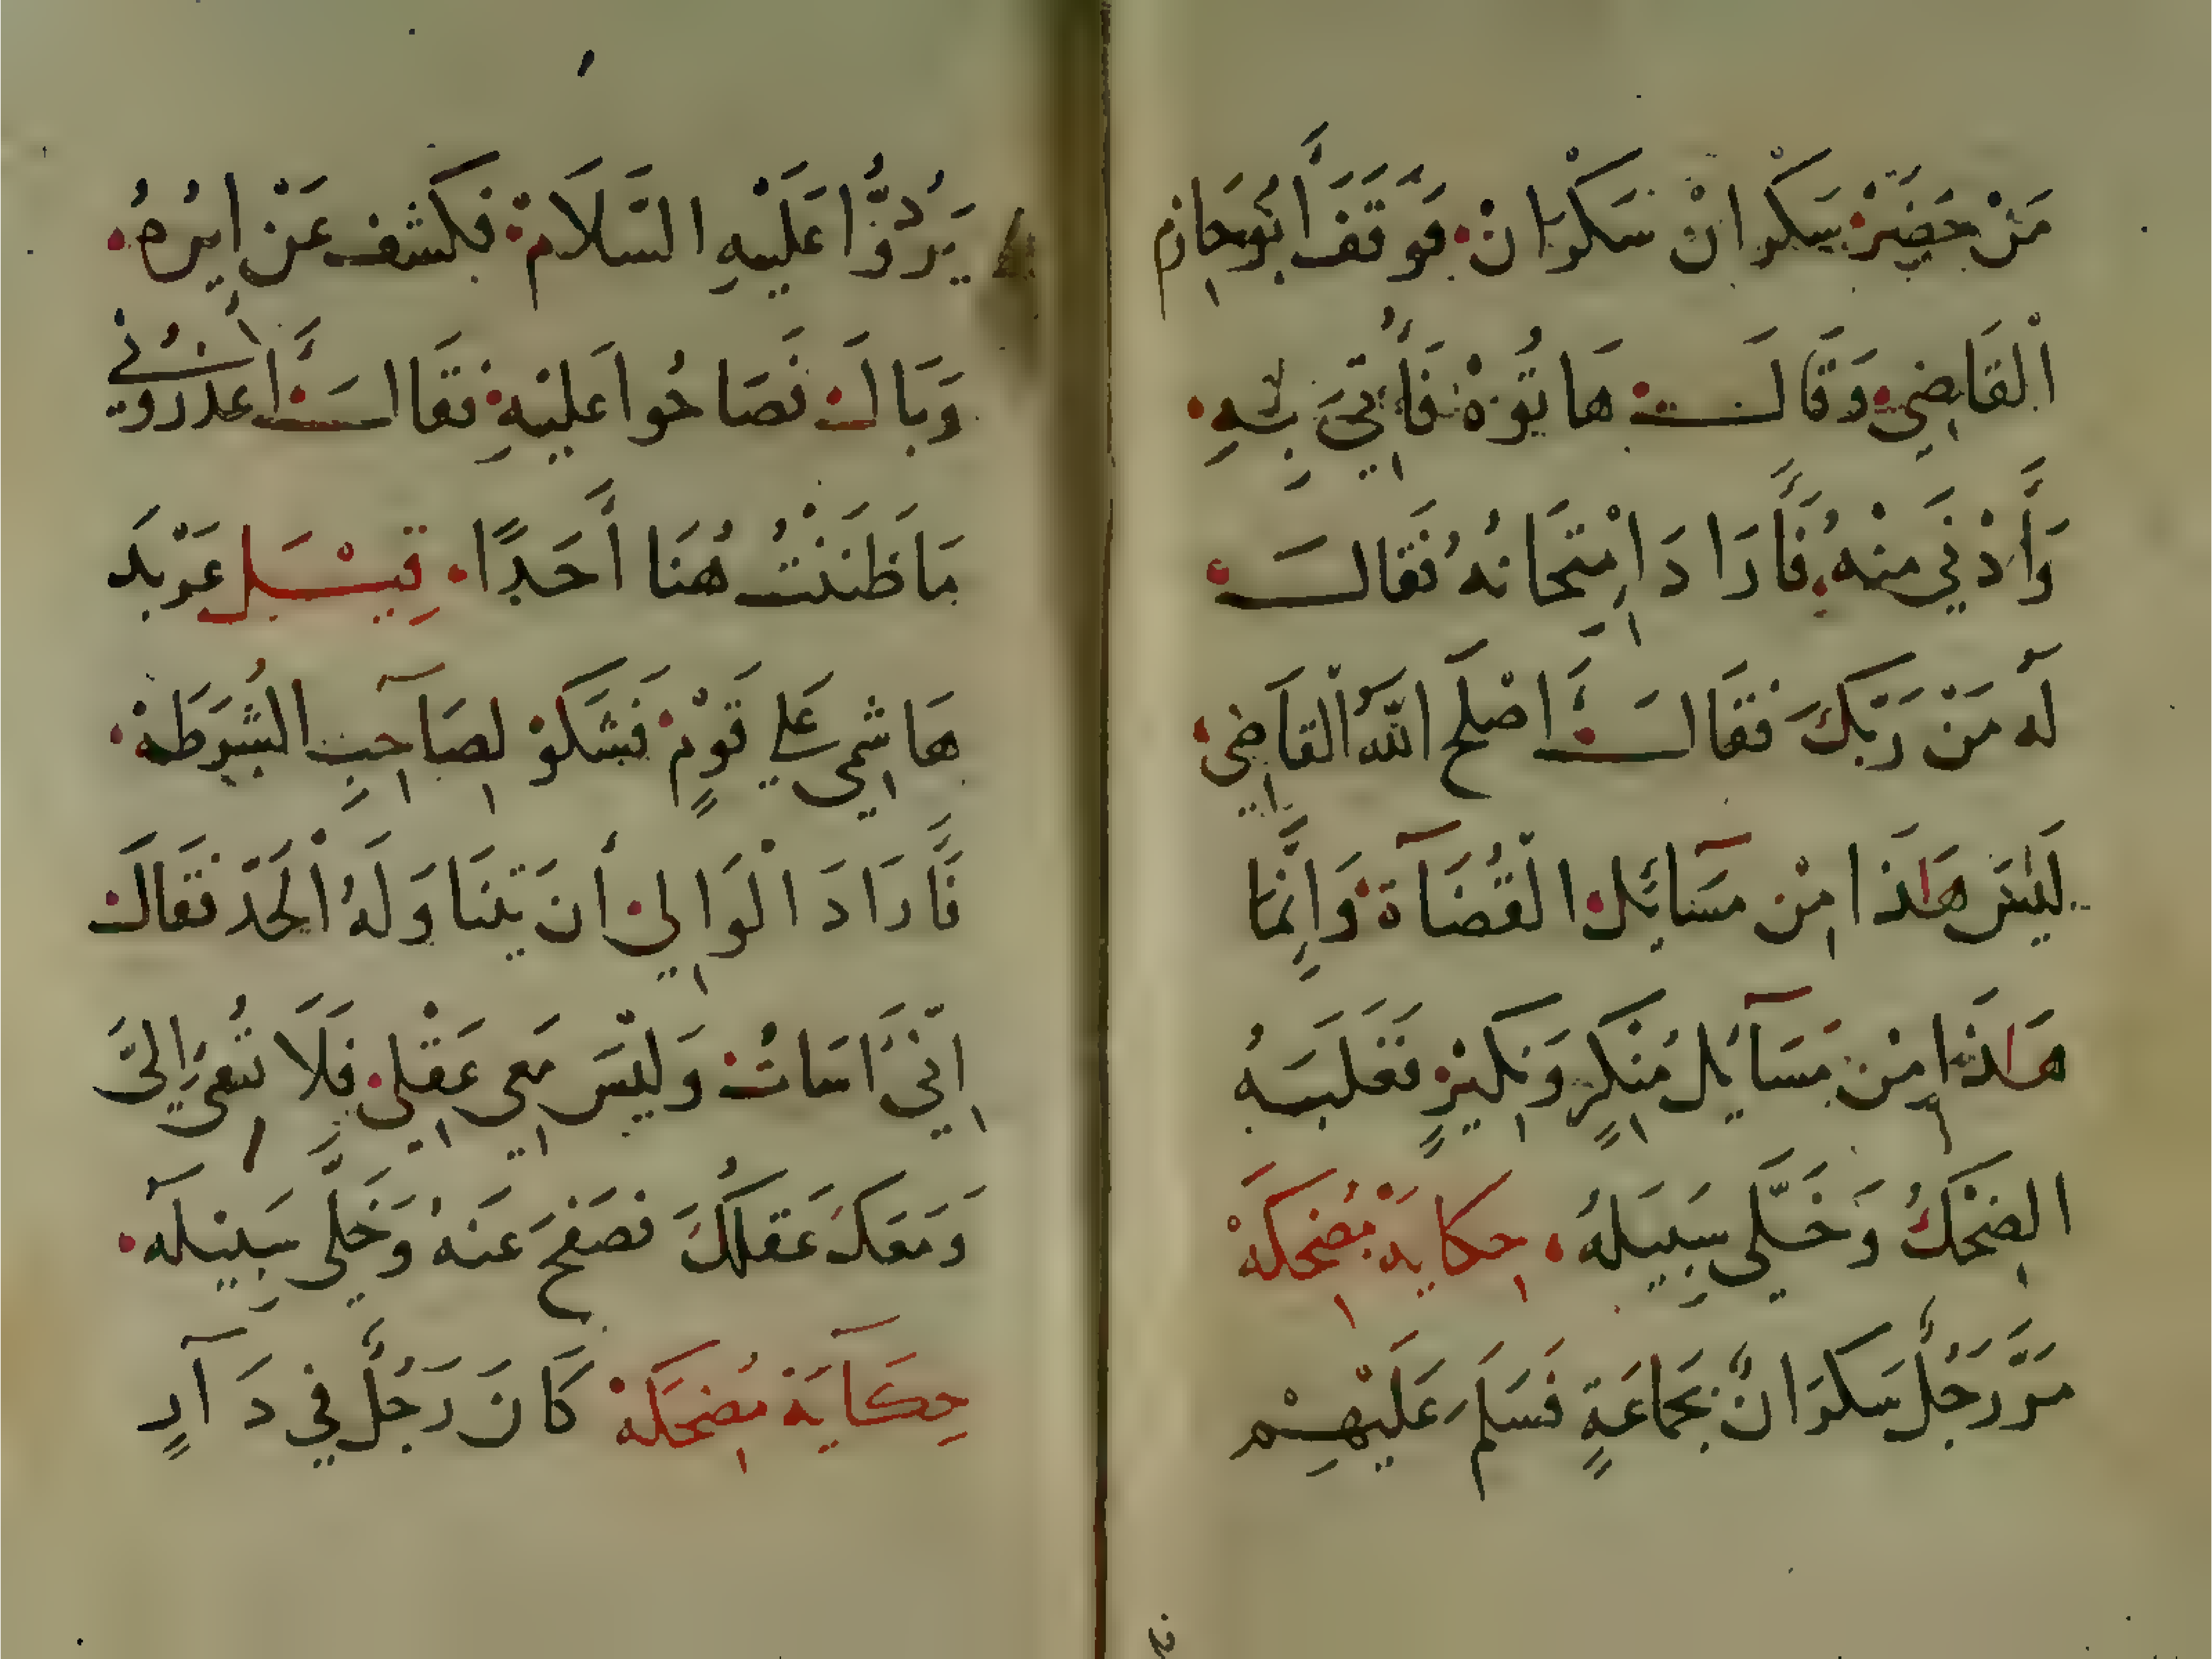 مَنْ حَضَرَ سَكْرَانْ سَكْرَانْ فَوَقَفَ أَبُو حَازِم
الْقَاضِي وَقَالَ هَاتُوهُ فَأُتِيَ بِهِ
وَأُدْنِيَ مِنْهُ فَأَرَادَ اِمْتِحَانَهُ فَقَالَ
لَهُ مَنْ رَبُّكَ فَقَالَ أَصْلَحَ اللَّهُ الْقَاضِي
لَيْسَ هَاذَا مِنْ مَسَآئِلِ الْقُضَآةِ وَإِنَّمَا
هَاذَا مِنْ مَسَآئِلِ مُنْكِرٍ وَنَكِيْرٍ فَغَلَبَهُ
الضِحْكُ وَخَلَّى سَبِيْلَهُ حِكَايَة مُضْحِكَة
مَرَّ رَجُلٌ سَكْرَانٌ بِجَمَاعَةٍ فَسَلَّمَ عَلَيْهِمْ
يَرُدُّوْا عَلَيْهِ السَّلَامْ فَكَشَفَ عَنْ اَيْرِهُ
وَبَالَ فَصَاحُوا عَلَيْهِ فَقَالَ أُعْذُرُونِي
مَا ظَنَنْتُ هُنَا أَحَدًا قِيْلَ عَرْبَدَ
هَاشِمِي عَلَى قَوْمٍ فَشَكَوْ لِصَاحِبِ الشُرَطَة
فَأَرَادَ الْوَالِي أَن يَتَنَاوَلَهُ الْحَدّ فَقَالَ
اِنِّيَ اَسَاتُ وَلَيْسَ مَعِي عَقْلِي فَلَا تُسِىْ إِلَيَّ
وَمَعَكَ عَقْلُكَ فَصَفَحَ عَنْهُ وَخَلَّى سَبِيْلَهُ
حِكَآيَة مُضْحِكَة كَانَ رَجُلٌ فِي دَآرٍ